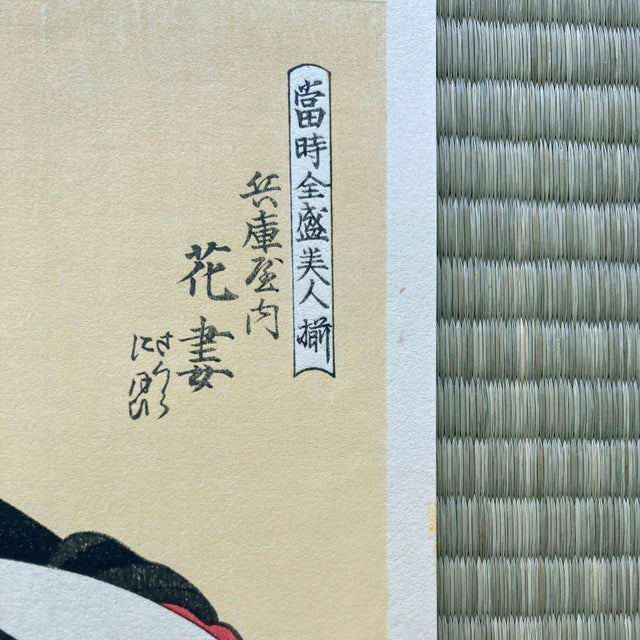 當時全盛美人揃
兵庫屋内
花妻
さくら
にほひ